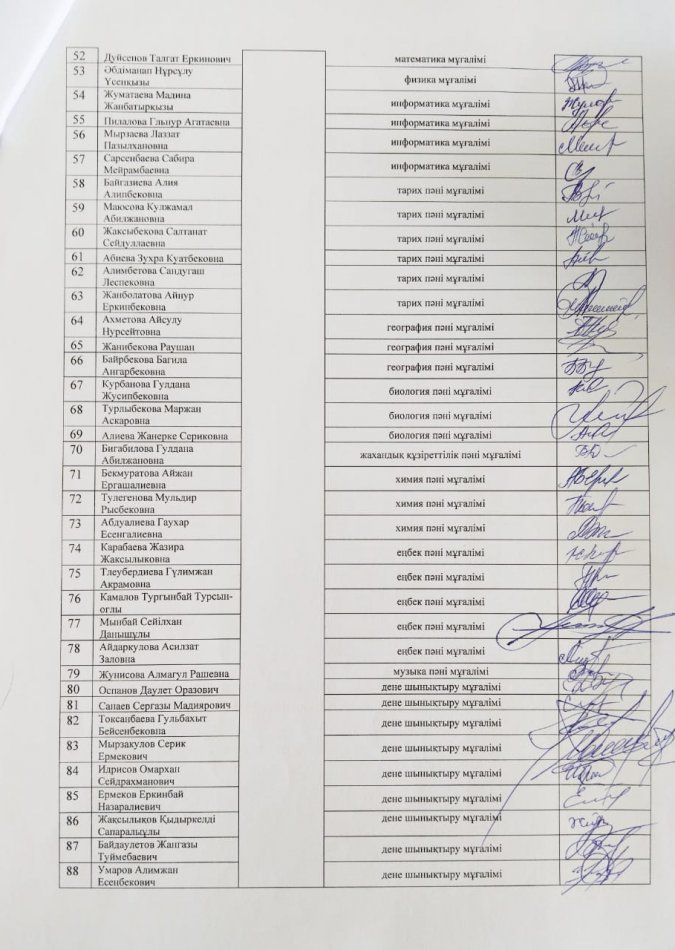 52 Дуйсенов Талгат Еркинович математика мұғалімі
53 Әбдіманап Нұрсұлу физика мұғалімі
Үсенқызы
54 Жуматаева Мадина информатика мұғалімі
Жанбатырқызы
55 Пилалова Гльнур Агатаевна информатика мұғалімі
56 Мырзаева Лаззат информатика мұғалімі
Пазылхановна
57 Сарсенбаева Сабира информатика мұғалімі
Мейрамбаевна
58 Байгазиева Алия тарих пәні мұғалімі
Алипбековна
59 Маюсова Кулжамал тарих пәні мұғалімі
Абилжановна
60 Жаксыбекова Салтанат тарих пәні мұғалімі
Сейдуллаевна
61 Абиева Зухра Куатбековна тарих пәні мұғалімі
62 Алимбетова Сандугаш тарих пәні мұғалімі
Леспековна
63 Жанболатова Айнур тарих пәні мұғалімі
Еркинбековна
64 Ахметова Айсулу география пәні мұғалімі
Нурсейтовна
65 Жанибекова Раушан география пәні мұғалімі
66 Байрбекова Багила география пәні мұғалімі
Ангарбековна
67 Курбанова Гулдана биология пәні мұғалімі
Жусипбековна
68 Турлыбекова Маржан биология пәні мұғалімі
Аскаровна
69 Алиева Жанерке Сериковна биология пәні мұғалімі
70 Бигабилова Гулдана жахандық құзіреттілік пәні мұғалімі
Абилжановна
71 Бекмуратова Айжан химия пәні мұғалімі
Ергашалиевна
72 Тулегенова Мульдир химия пәні мұғалімі
Рысбековна
73 Абдуалиева Гаухар химия пәні мұғалімі
Есенгалиевна
74 Карабаева Жазира еңбек пәні мұғалімі
Жаксылыковна
75 Тлеубердиева Гүлимжан еңбек пәні мұғалімі
Акрамовна
76 Камалов Тургынбай Турсын- еңбек пәні мұғалімі
оглы
77 Мынбай Сейілхан еңбек пәні мұғалімі
Данышұлы
78 Айдаркулова Асилзат еңбек пәні мұғалімі
Заловна
79 Жунисова Алмагул Рашевна музыка пәні мұғалімі
80 Оспанов Даулет Оразович дене шынықтыру мұғалімі
81 Санаев Сергазы Мадиярович дене шынықтыру мұғалімі
82 Токсанбаева Гульбахыт дене шынықтыру мұғалімі
Бейсенбековна
83 Мырзакулов Серик дене шынықтыру мұғалімі
Ермекович
84 Идрисов Омархан дене шынықтыру мұғалімі
Сейдрахманович
85 Ермеков Еркинбай дене шынықтыру мұғалімі
Назаралиевич
86 Жақсылықов Қыдыркелді дене шынықтыру мұғалімі
Сапаралыұлы
87 Байдаулетов Жангазы дене шынықтыру мұғалімі
Туймебаевич
88 Умаров Алимжан дене шынықтыру мұғалімі
Есенбекович